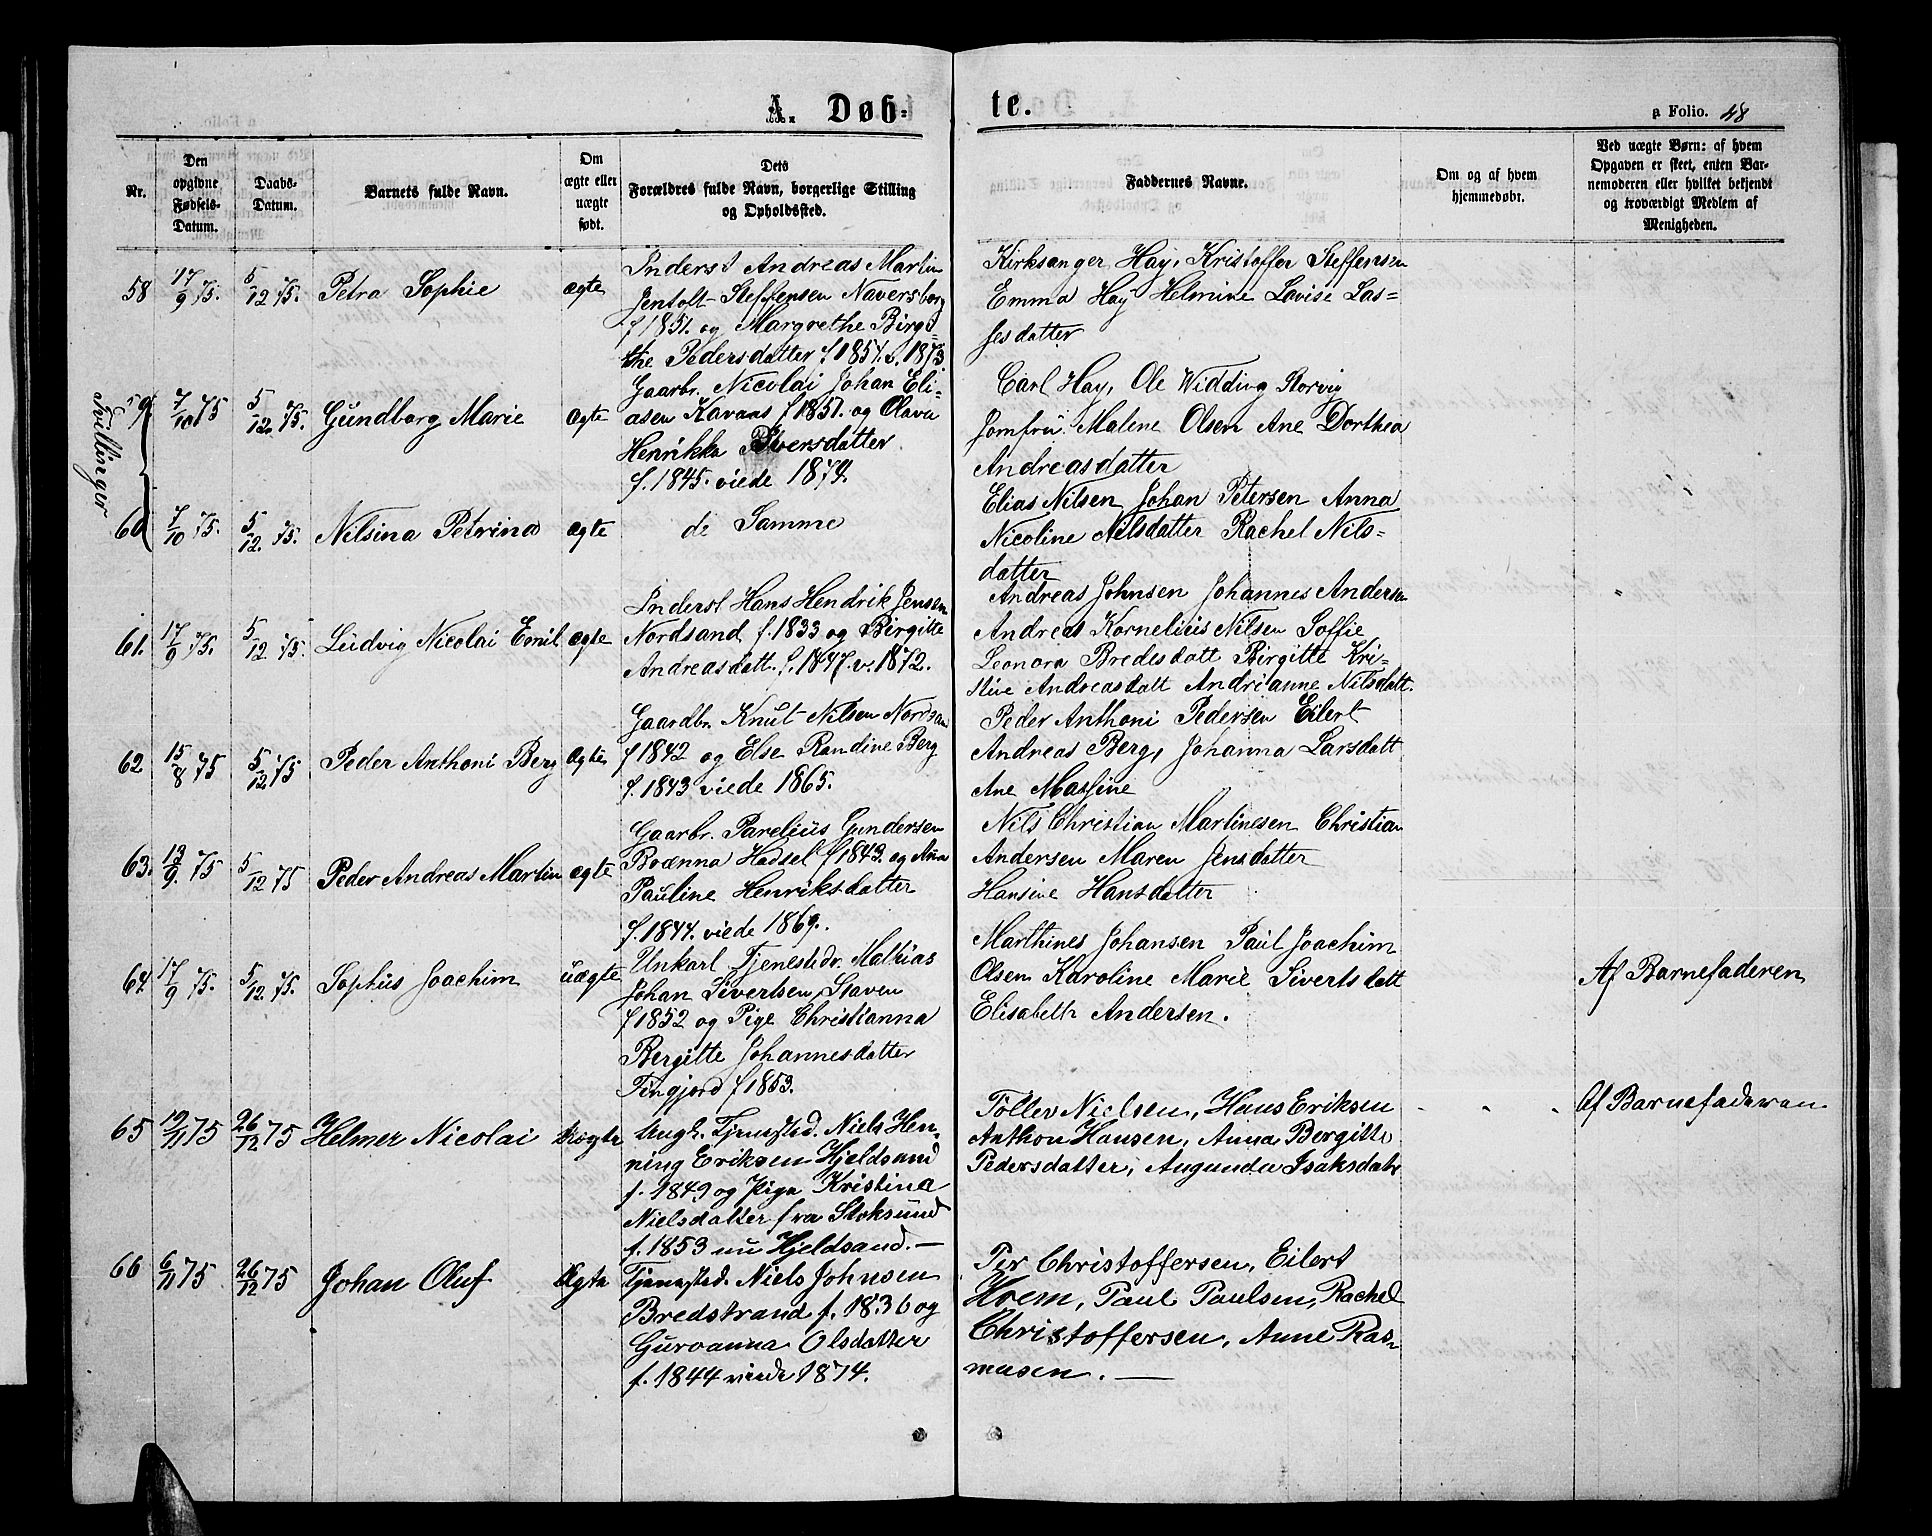 A. Døb-
te.
a Folio. 48
Nr.
Den
opgivne
Fødsels-
Datum.
Daabs-
Datum.
Barnets fulde Navn.
Om
ægte eller
uægte
født.
Dets
Forældres fulde Navn, borgerlige Stilling
og Opholdssted.
Faddernes Navne.
Om og af hvem
hjemmedøbt.
Ved uægte Børn: af hvem
Opgaven er skeet, enten Bar-
nemoderen eller hvilket bekjendt
og troværdigt Medlem af
Menigheden.
58 17/9 75. 5/12 75. Petra Sophie ægte
Inderst Andreas Martin
Jentoft Steffensen Naversborg
f 1851. og Margrethe Birgi=
the Pedersdatter f. 1854. v. 1873
Kirksanger Hay, Kristoffer Steffensen
Emma Hay Helmine Lovise Las=
sesdatter
Tvillinger
59 7/10 75 5/12 75. Gundborg Marie ægte
Gaarbr. Nicolai Johan Eli-
asen Kavaas f 1851. og Olava
Henrikka Iversdatter
f. 1845. viede 1874.
Carl Hay, Ole Widding Storvig
Jomfru Malene Olsen Ane Dorthea
Andreasdatter
60 7/10 75. 5/12. 75. Nilsina Petrina ægte
de Samme
Elias Nilsen Johan Petersen Anna
Nicoline Nilsdatter Rachel Nils=
datter
61. 17/9 75. 5/12 75. Ludvig Nicolai Emil ægte
Inderst Hans Hendrik Jensen
Nordsand f. 1833 og Birgitte
Andreasdatt. f. 1847. v. 1872.
Andreas Johnsen Johannes Andersen
Andreas Kornelius Nilsen Soffie
Leonora Bredesdatt Birgitte Kri=
stine Andreasdatt Andrianne Nilsdatt.
62 15/8 75 5/12 75 Peder Anthoni Berg ægte
Gaardbr. Knut Nilsen Nordsan
f 1842 og Else Randine Berg
f. 1843 viede 1865.
Peder Anthoni Pedersen Eilert
Andreas Berg, Johanna Larsdatt
Ane Massine
63. 13/9. 75 5/12 75 Peder Andreas Martin ægte
Gaarbr. Parelius Gundersen
Boænna Hadsel f 1843. og Ana
Pauline Henriksdatter
f. 1844. viede 1869.
Nils Christian Martinesen Christian
Andersen Maren Jensdatter
Hansine Hansdatter
64 17/9 75. 5/12 75. Sophus Joachim uægte
Unkarl Tjenestedr. Mathias
Johan Sivertsen Staven
f 1852 og Pige Christianna
Bergitte Johannesdatter
Tingjord f 1853.
Marthines Johansen Paul Joachim
Olsen Karoline Marie Sivertsdatt
Elisabeth Andersen.
Af Barnefaderen
65 12/11 75 26/12 75 Helmer Nicolai Uægte
Ungk. Tjenested. Niels Hen-
ning Eriksen Hjeldsand
f. 1849 og Pige Kristina
Nielsdatter fra Stoksund
f. 1853 nu Hjeldsand. —
Tollev Nielsen, Hans Eriksen
Anthon Hansen, Anna Bergitte
Pedersdatter, Augunda Isaksdatr
Af Barnefaderen
66 6/11 75 26/12 75 Johan Oluf Ægte
Tjenested. Niels Johnsen
Bredstrand f. 1836 og
Guroanna Olsdatter
f. 1844 viede 1874.
Per Christoffersen, Eilert
Hoem, Paul Paulsen, Rachel
Christoffersen, Anne Ras-
musen. —